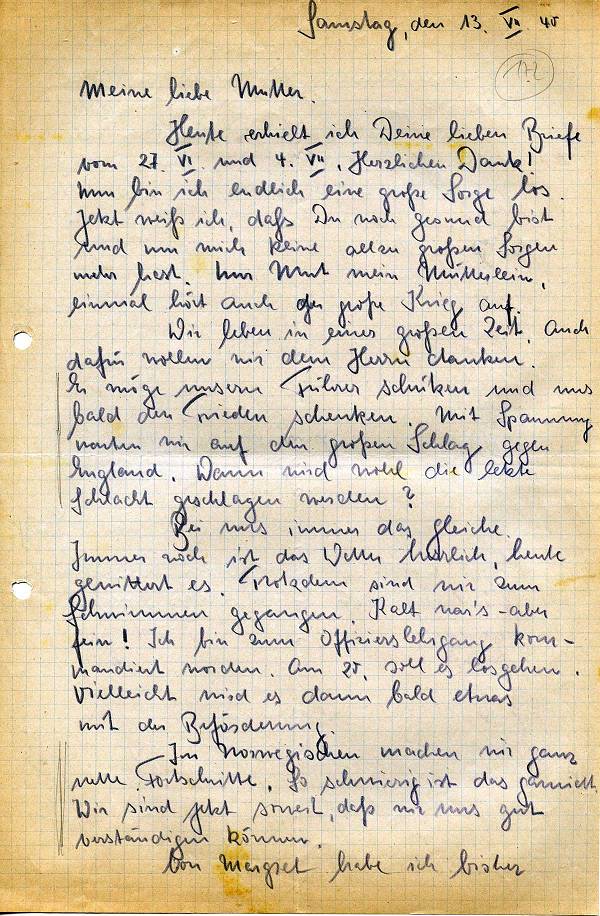 Samstag, den 13. VII 40
172
Meine liebe Mutter.
Heute erhielt ich Deine lieben Briefe
vom 27. VI und 4. VII. Herzlichen Dank!
Nun bin ich endlich eine große Sorge los.
Jetzt weiß ich, daß Du noch gesund bist
und um mich keine allzu großen Sorgen
mehr hast. Nur Mut mein Mütterlein,
einmal hört auch der große Krieg auf.
Wir leben in einer großen Zeit. Auch
dafür wollen wir dem Herrn danken.
Er möge unsern Führer schützen und uns
bald den Frieden schenken. Mit Spannung
warten wir auf den großen Schlag gegen
England. Wann wird wohl die letzte
Schlacht geschlagen werden?
Bei uns immer das gleiche.
Immer noch ist das Wetter herrlich, heute
gewittert es. Trotzdem sind wir zum
Schwimmen gegangen. Kalt war's - aber
fein! Ich bin zum Offizierslehrgang kom-
mandiert worden. Am 20. soll es losgehen.
Vielleicht wird es dann bald etwas
mit der Beförderung.
Im Norwegischen machen wir ganz
nette Fortschritte. So schwierig ist das garnicht.
Wir sind jetzt soweit, daß wir uns gut
verständigen können.
Von Margret habe ich bisher